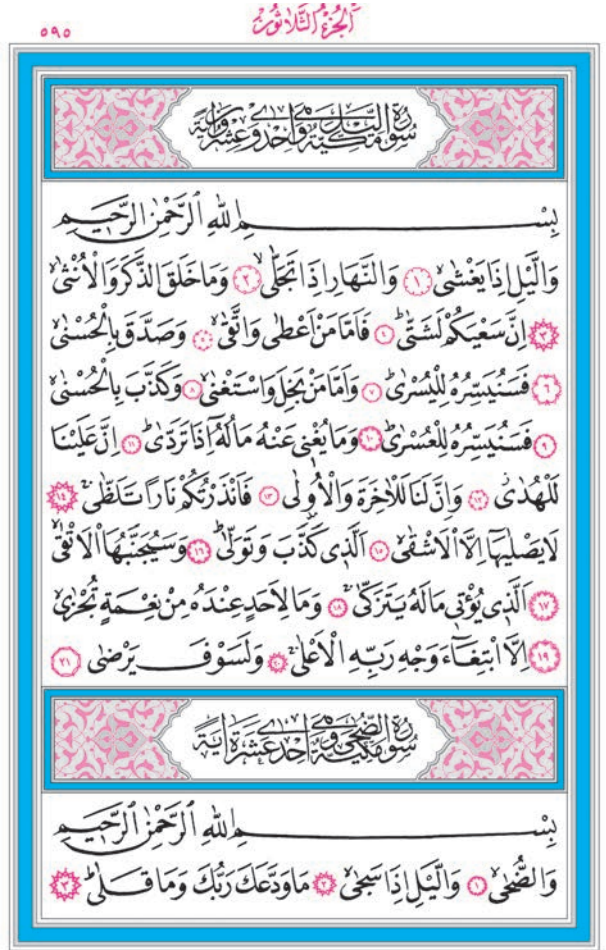 اَلْجُزْءُ الثَّلَاثُونَ
٥٩٥
سُورَةُ الَّيْلِ مَكِّيَّةٌ وَهِيَ اِحْدٰى وَعِشْرُونَ اٰيَةً
بِسْمِ اللهِ الرَّحْمٰنِ الرَّحٖيمِ
وَالَّيْلِ اِذَا يَغْشٰىۙ ﴿١﴾ وَالنَّهَارِ اِذَا تَجَلّٰىۙ ﴿٢﴾ وَمَا خَلَقَ الذَّكَرَ وَالْاُنْثٰىۙ
﴿٣﴾ اِنَّ سَعْيَكُمْ لَشَتّٰىۜ ﴿٤﴾ فَاَمَّا مَنْ اَعْطٰى وَاتَّقٰىۙ ﴿٥﴾ وَصَدَّقَ بِالْحُسْنٰىۙ
﴿٦﴾ فَسَنُيَسِّرُهُ لِلْيُسْرٰىۜ ﴿٧﴾ وَاَمَّا مَنْ بَخِلَ وَاسْتَغْنٰىۙ ﴿٨﴾ وَكَذَّبَ بِالْحُسْنٰىۙ
﴿٩﴾ فَسَنُيَسِّرُهُ لِلْعُسْرٰىۜ ﴿١٠﴾ وَمَا يُغْنٖي عَنْهُ مَالُهُٓ اِذَا تَرَدّٰىۜ ﴿١١﴾ اِنَّ عَلَيْنَا
لَلْهُدٰىۘ ﴿١٢﴾ وَاِنَّ لَنَا لَلْاٰخِرَةَ وَالْاُو۫لٰى ﴿١٣﴾ فَاَنْذَرْتُكُمْ نَارًا تَلَظّٰىۚ ﴿١٤﴾
لَا يَصْلٰيهَٓا اِلَّا الْاَشْقٰىۙ ﴿١٥﴾ اَلَّذٖي كَذَّبَ وَتَوَلّٰىۜ ﴿١٦﴾ وَسَيُجَنَّبُهَا الْاَتْقٰىۙ
﴿١٧﴾ اَلَّذٖي يُؤْتٖي مَالَهُ يَتَزَكّٰىۚ ﴿١٨﴾ وَمَا لِاَحَدٍ عِنْدَهُ مِنْ نِعْمَةٍ تُجْزٰىۙ
﴿١٩﴾ اِلَّا ابْتِغَٓاءَ وَجْهِ رَبِّهِ الْاَعْلٰىۚ ﴿٢٠﴾ وَلَسَوْفَ يَرْضٰى ﴿٢١﴾
سُورَةُ الضُّحٰى مَكِّيَّةٌ وَهِيَ اِحْدٰى عَشْرَةَ اٰيَةً
بِسْمِ اللهِ الرَّحْمٰنِ الرَّحٖيمِ
وَالضُّحٰىۙ ﴿١﴾ وَالَّيْلِ اِذَا سَجٰىۙ ﴿٢﴾ مَا وَدَّعَكَ رَبُّكَ وَمَا قَلٰىۜ ﴿٣﴾